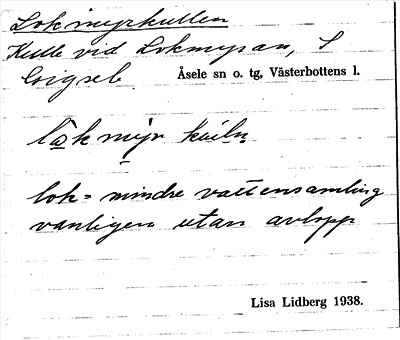 Lokmyrkullen
Kulle vid Lokmyran, S
Åsele sn o. tg, Västerbottens l.
lok = mindre vattensamling
vanligen utan avlopp
Lisa Lidberg 1938.